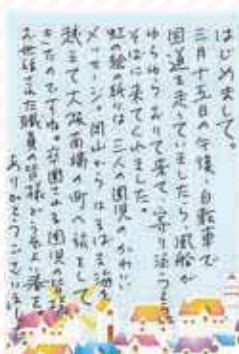 はじめまして。
三月十五日の午後、自転車で
国道を走っていましたら風船が
ゆらゆらおりて来て、寄り添うように
そばに来てくれました。
虹の絵の飾りは、三人の園児のかわいい
メッセージ。岡山からはるばる海を
越えて大阪南場の町へ旅をして
きたのですね。卒園される園児の皆様
お世話された職員の皆様
ありがとうございました